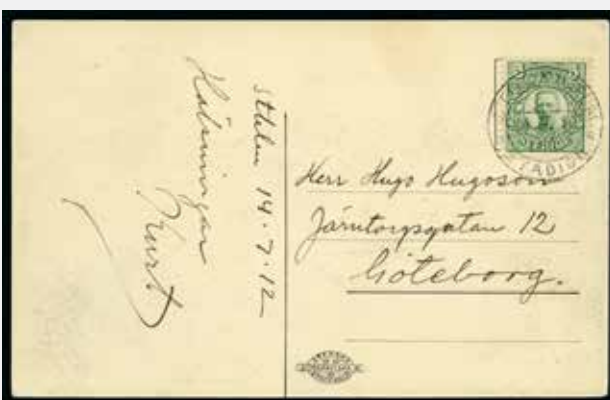 Sthlm 14.7.12
Hälsningar
Kurt
Herr Hugo Hugoson
Järntorgsgatan 12
Göteborg.
STADION